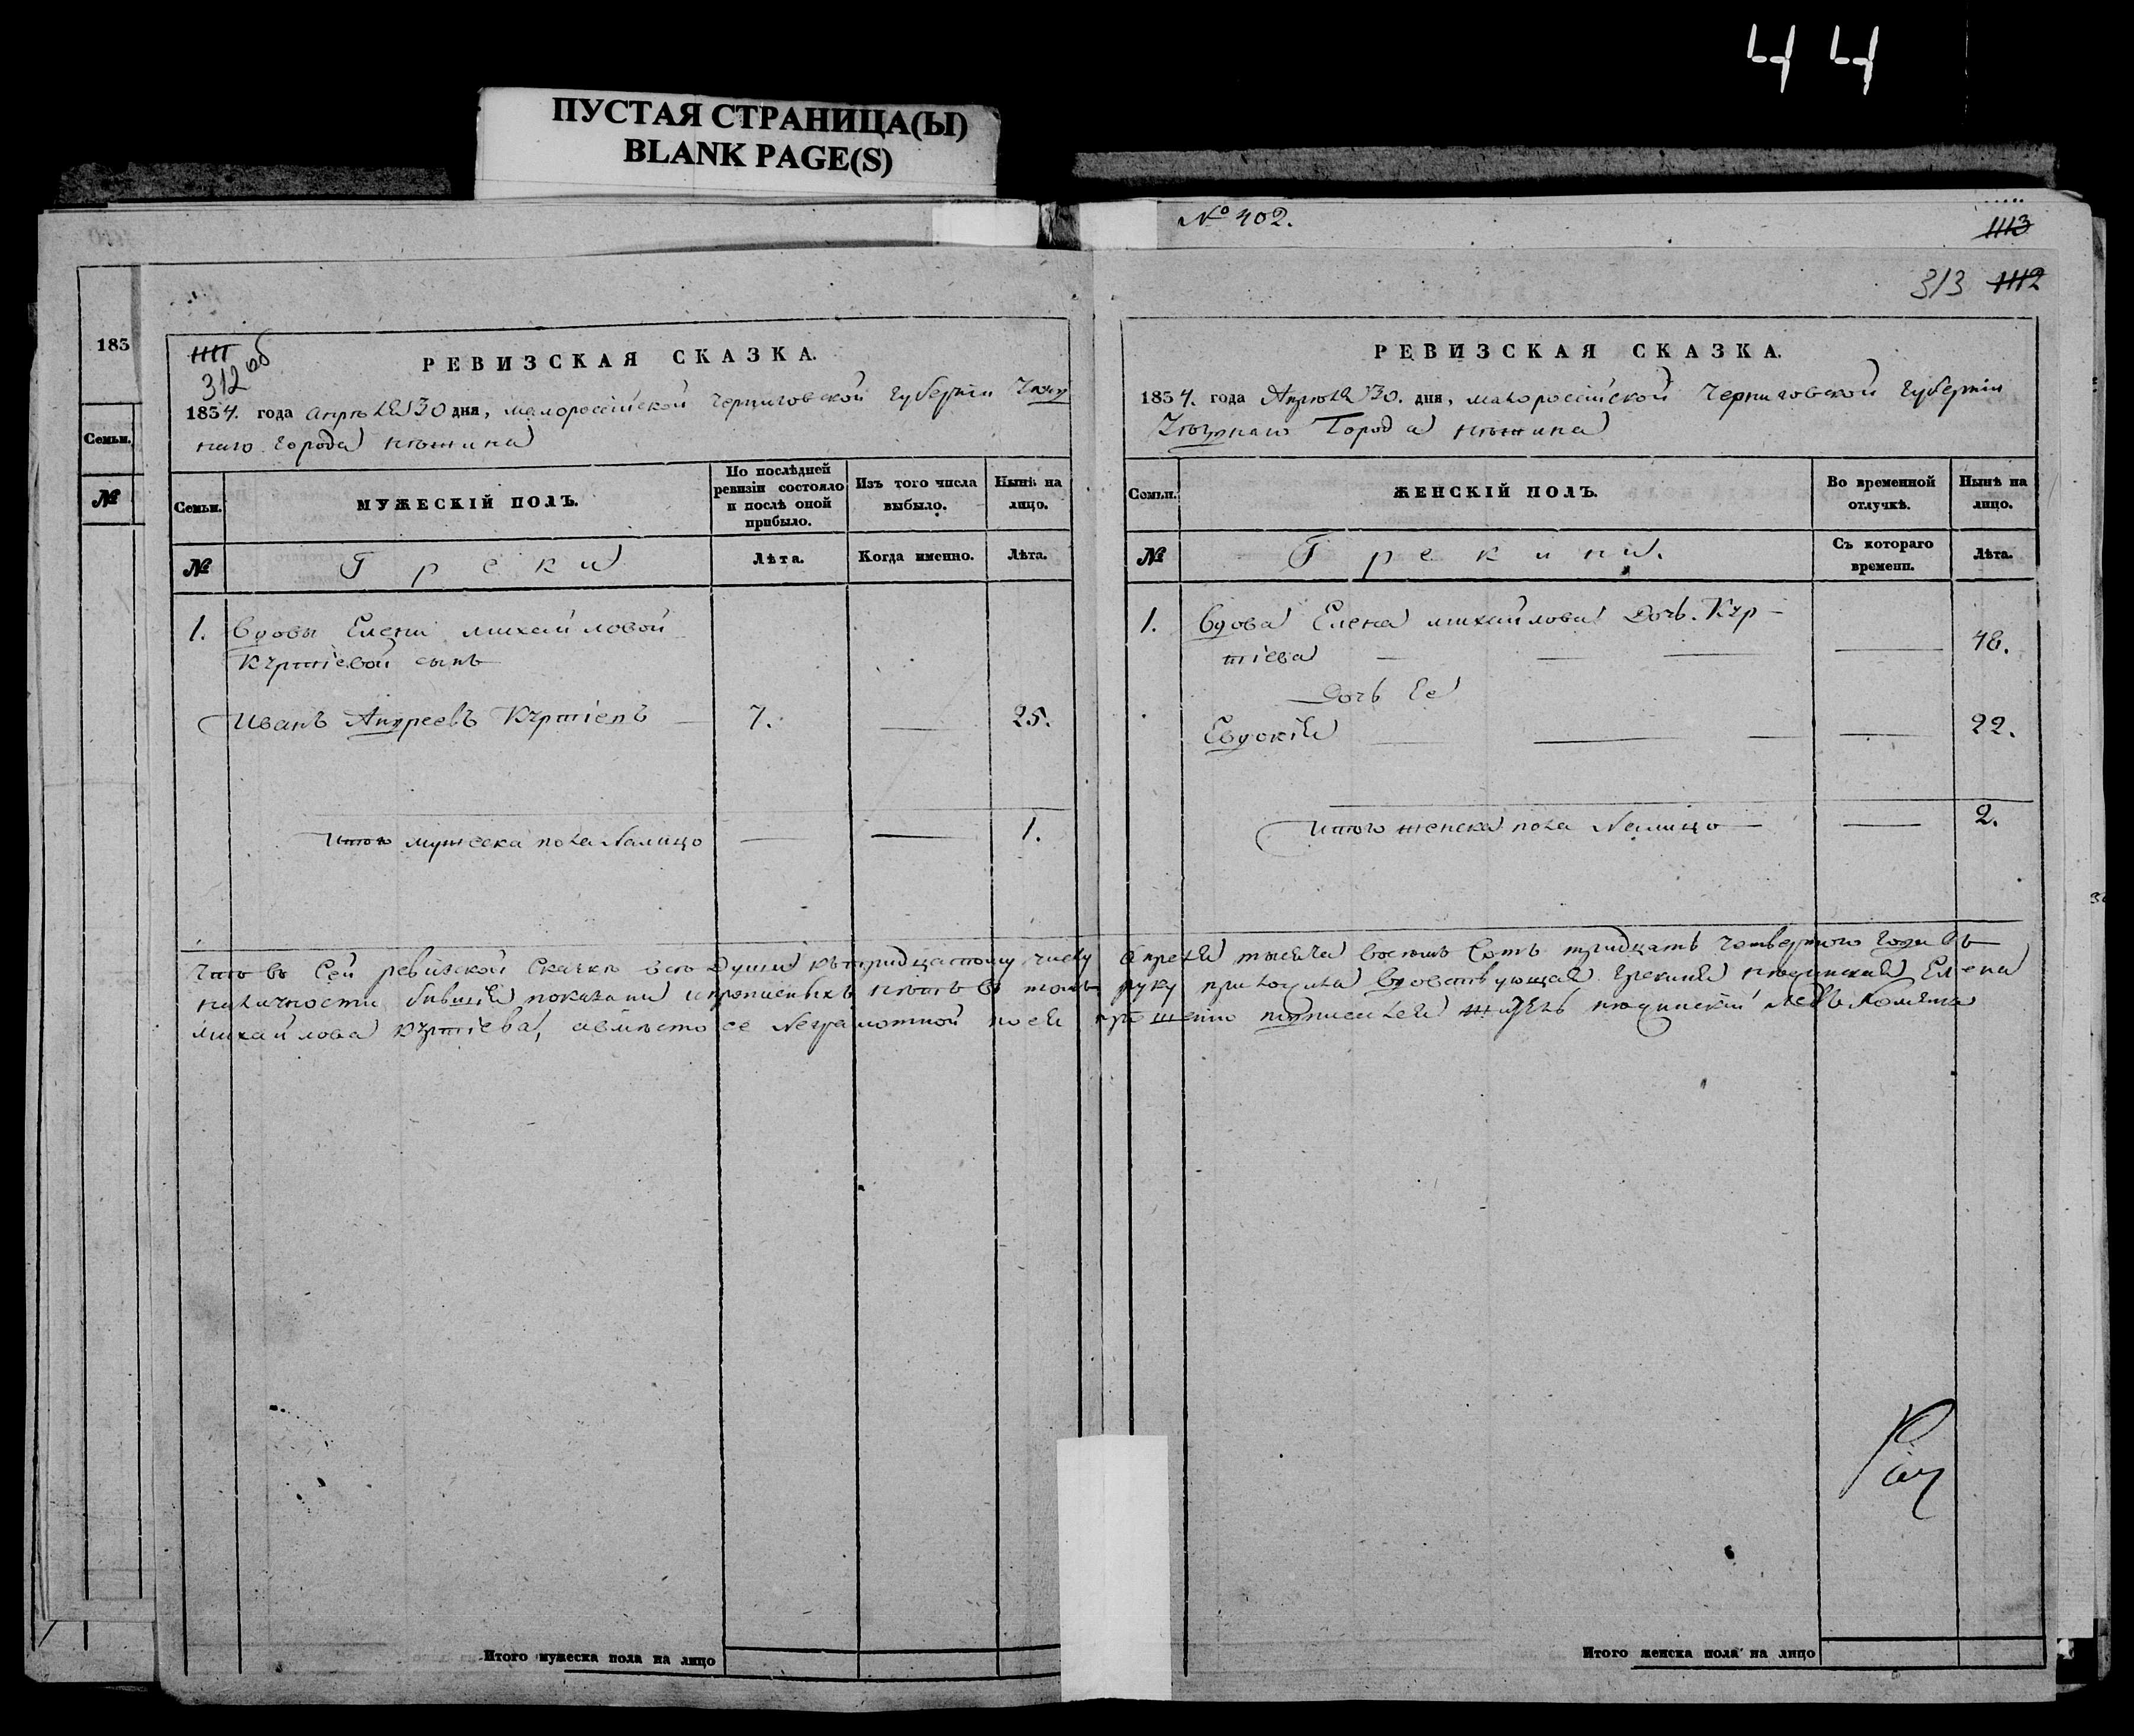 44
ПУСТАЯ СТРАНИЦА(Ы)
BLANK PAGE(S)
№ 402.
1113
313 1112
183
Семьи.
№
1111
312 об
РЕВИЗСКАЯ СКАЗКА.
1834. года Апреля 30 дня, малороссійской Черниговской Губерніи Уезд
наго Города Нѣжина
Семьи.
МУЖЕСКІЙ ПОЛЪ.
По послѣдней ревизіи состояло и послѣ оной прибыло.
Изъ того числа выбыло.
Нынѣ на лицо.
№
Греки
Лѣта.
Когда именно.
Лѣта.
1. Вдовы Елены Михайловой
сынъ
Иванъ Андреевъ 7. — 25.
Итого мужеска пола налицо — — 1.
Итого мужеска пола на лицо
РЕВИЗСКАЯ СКАЗКА.
1834. года Апреля 30. дня, малороссійской Черниговской Губерніи
Уезднаго Города Нѣжина
Семьи.
ЖЕНСКІЙ ПОЛЪ.
Во временной отлучкѣ.
Нынѣ на лицо.
№
Грекини.
Съ котораго времени.
Лѣта.
1. Вдова Елена Михайлова Дочь
тіева — — — — 48.
Дочь Ее
Евдокія — — — — 22.
Итого женска пола налицо — — 2.
Что въ Сей ревизской Сказке все Души къ тридцатому числу Апреля тысяча восемъ Сотъ тридцать четвертого года въ
наличности бывшія показаны и прописныхъ нѣтъ въ томъ руку приложила вдовствующая грекиня нѣжинская Елена
Михайлова а вмѣсто ее неграмотной по ея прошенію нѣжинскій
Итого женска пола на лицо